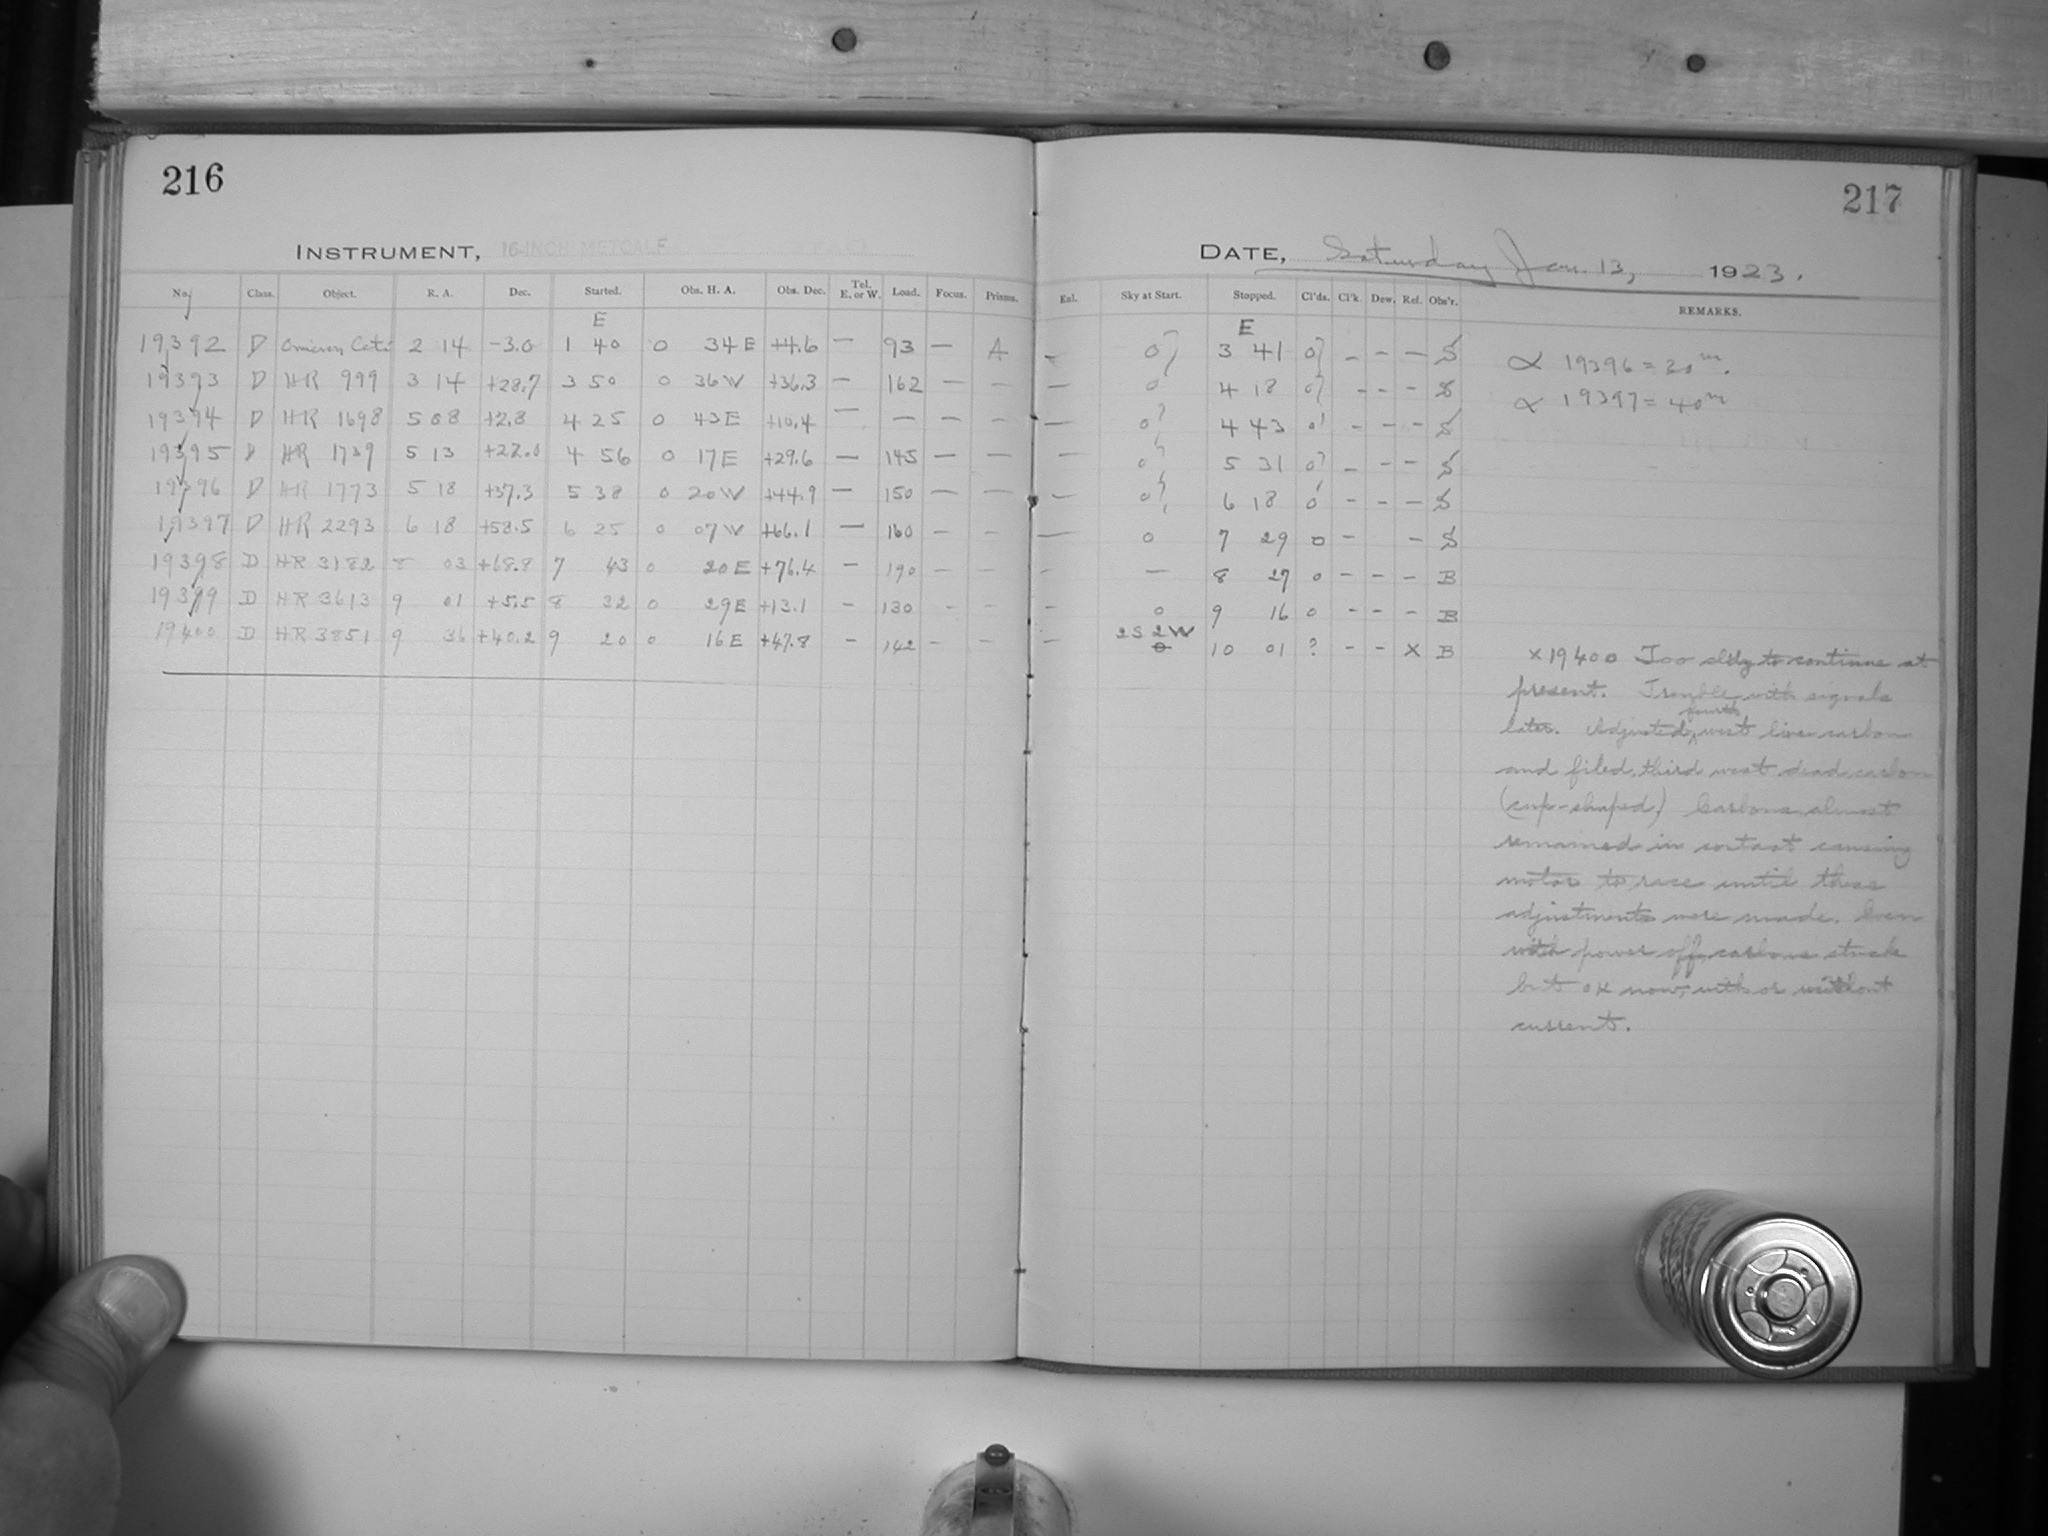 216
217
INSTRUMENT, 16-INCH METCALF
DATE, Saturday Jan. 13, 1923.
No. Class. Object. R. A. Dec. Started. Obs. H. A. Obs. Dec. Tel. E. or W. Load. Focus. Prisms. Exl. Sky at Start. Stopped. Cl'ds. Cl'k. Dew. Ref. Obs'r. REMARKS.
E E
19392 D Omicron Ceti 2 14 -3.0 1 40 0 34 E +4.6 — 93 — A — 0? 3 41 0? — — — S
19393 D HR 999 3 14 +28.7 3 50 0 36 W +36.3 — 162 — — — 0 4 18 0? — — — S
19394 D HR 1698 5 08 +2.8 4 25 0 43 E +10.4 — — — — — 0? 4 43 0' — — — S
19395 D HR 1739 5 13 +22.0 4 56 0 17 E +29.6 — 145 — — — 0? 5 31 0? — — — S
19396 D HR 1773 5 18 +37.3 5 38 0 20 W +44.9 — 150 — — — 0? 6 18 0' — — — S
19397 D HR 2293 6 18 +58.5 6 25 0 07 W +66.1 — 160 — — — 0 7 29 0 — — S
19398 D HR 3182 8 03 +68.8 7 43 0 20 E +76.4 — 190 — — — — 8 27 0 — — — B
19399 D HR 3613 9 01 +5.5 8 32 0 29 E +13.1 — 130 — — — 0 9 16 0 — — — B
2S 2W
19400 D HR 3851 9 36 +40.2 9 20 0 16 E +47.8 — 142 — — — 0 10 01 ? — — X B
∝ 19396 = 30m.
∝ 19397 = 40m
x 19400 Too cldy to continue at
present. Trouble with signals
fourth
later. Adjusted ^ west live carbon
and filed third west dead carbon
(cup-shaped). Carbons almost
remained in contact causing
motor to race until these
adjustments were made. Even
with power off, carbons stuck
but OK now, with or without
current.